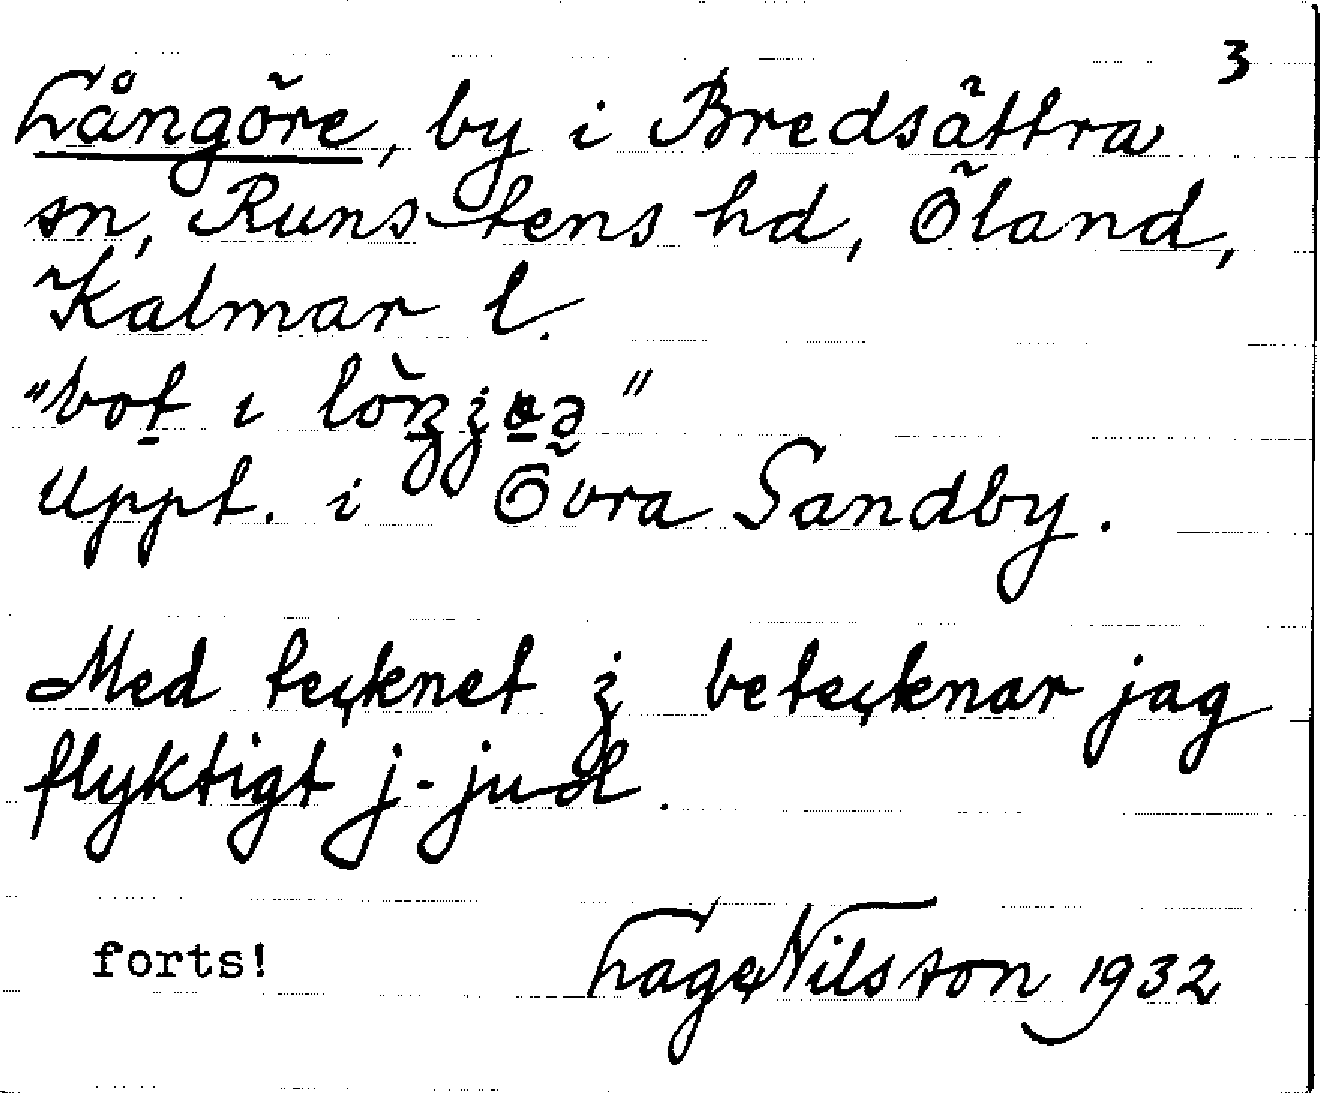 3
Långöre, by i Bredsättra
sn, Runstens hd, Öland,
Kalmar l.
"bot ı
Uppt. i Övra Sandby.
Med tecknet ʒ̇ betecknar jag
flyktigt j-jud.
forts! Lage Nilsson 1932